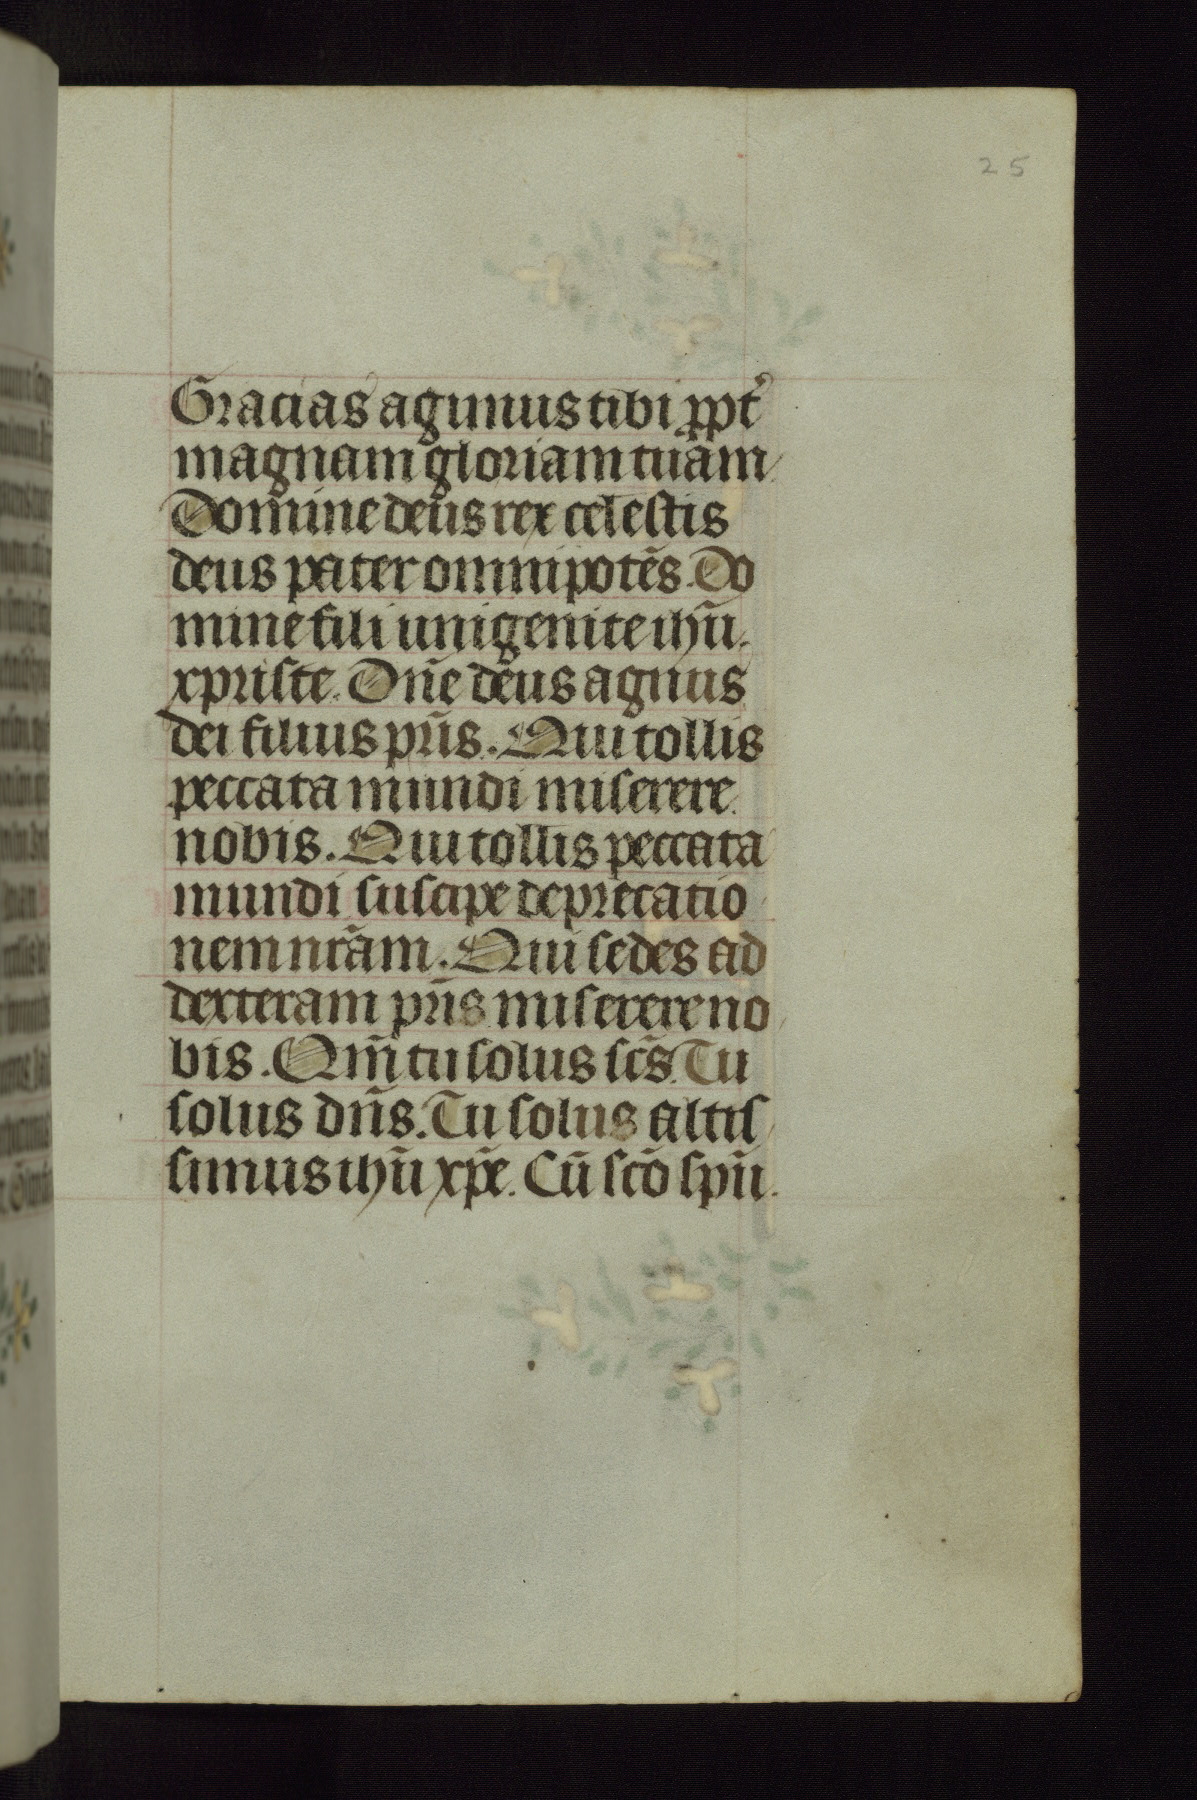 25
Gracias agimus tibi ꝓpt̉
magnam gloriam tuam
Domine deus rex celestis
deus pater omnipotēs. Do
mine fili unigenite ihū.
xpriste. Dn̄e deus agnus
dei filius pr̄is. Qui tollis
peccata mundi miserere
nobis. Qui tollis peccata
mundi suscipe deprecatio
nem nr̄am. Qui sedes ad
dexteram pr̄is miserere no
bis. Qm̄ tu solus sc̄s. Tu
solus dn̄s. Tu solus altis
simus ihū xp̄e. Cū sc̄o spū.